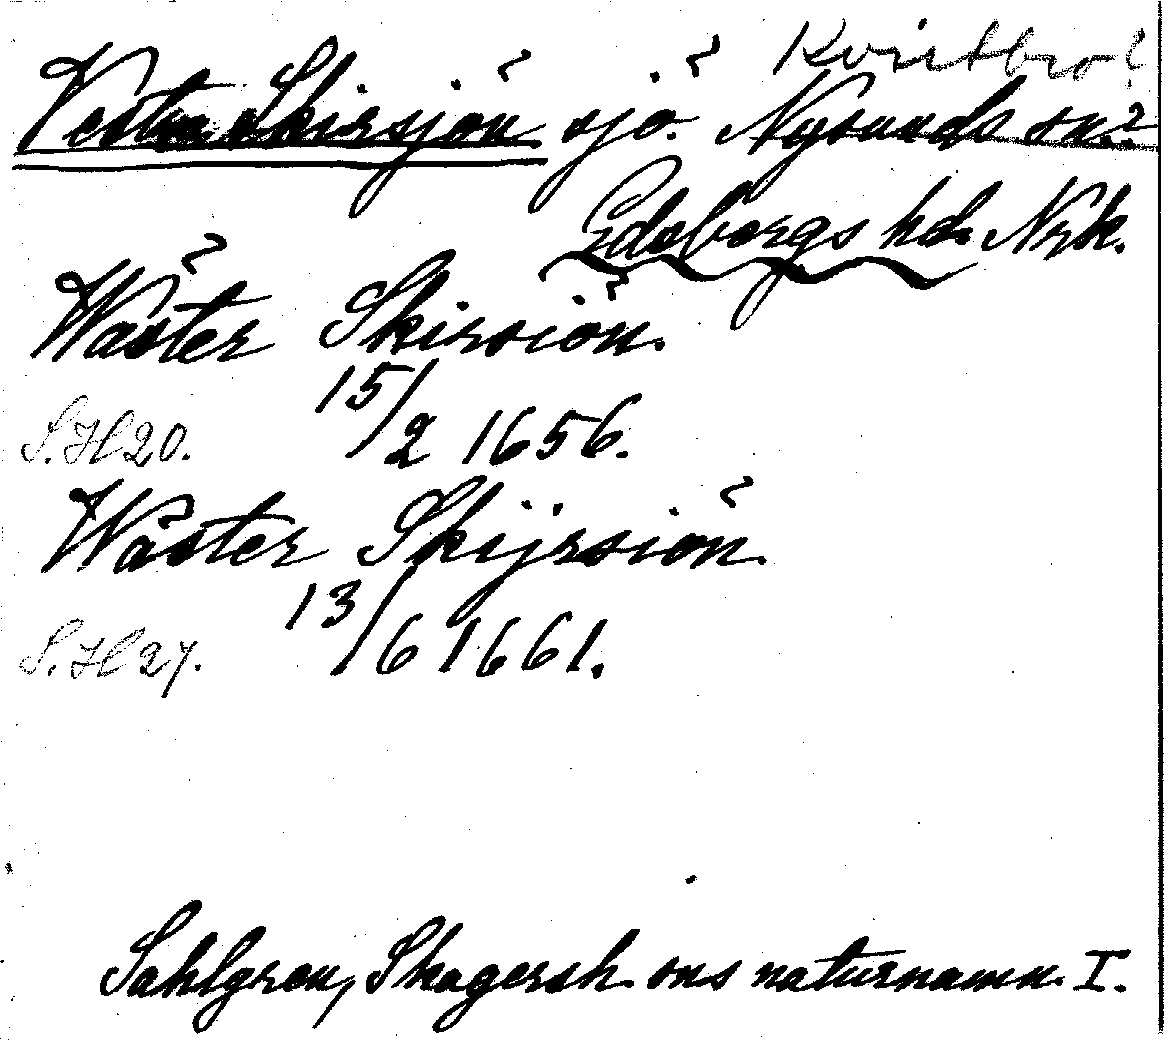 Kvistbro?
Vestra Skirsjön sjö. Nysunds sn.?
Edsbergs hd. Nrk.
Wäster Skirsiön.
15/2 1656.
S.H 20.
Wäster Skijrsiön.
13/6 1661.
S.H 27.
Sahlgren, Skagersh. ons naturnamn. I.